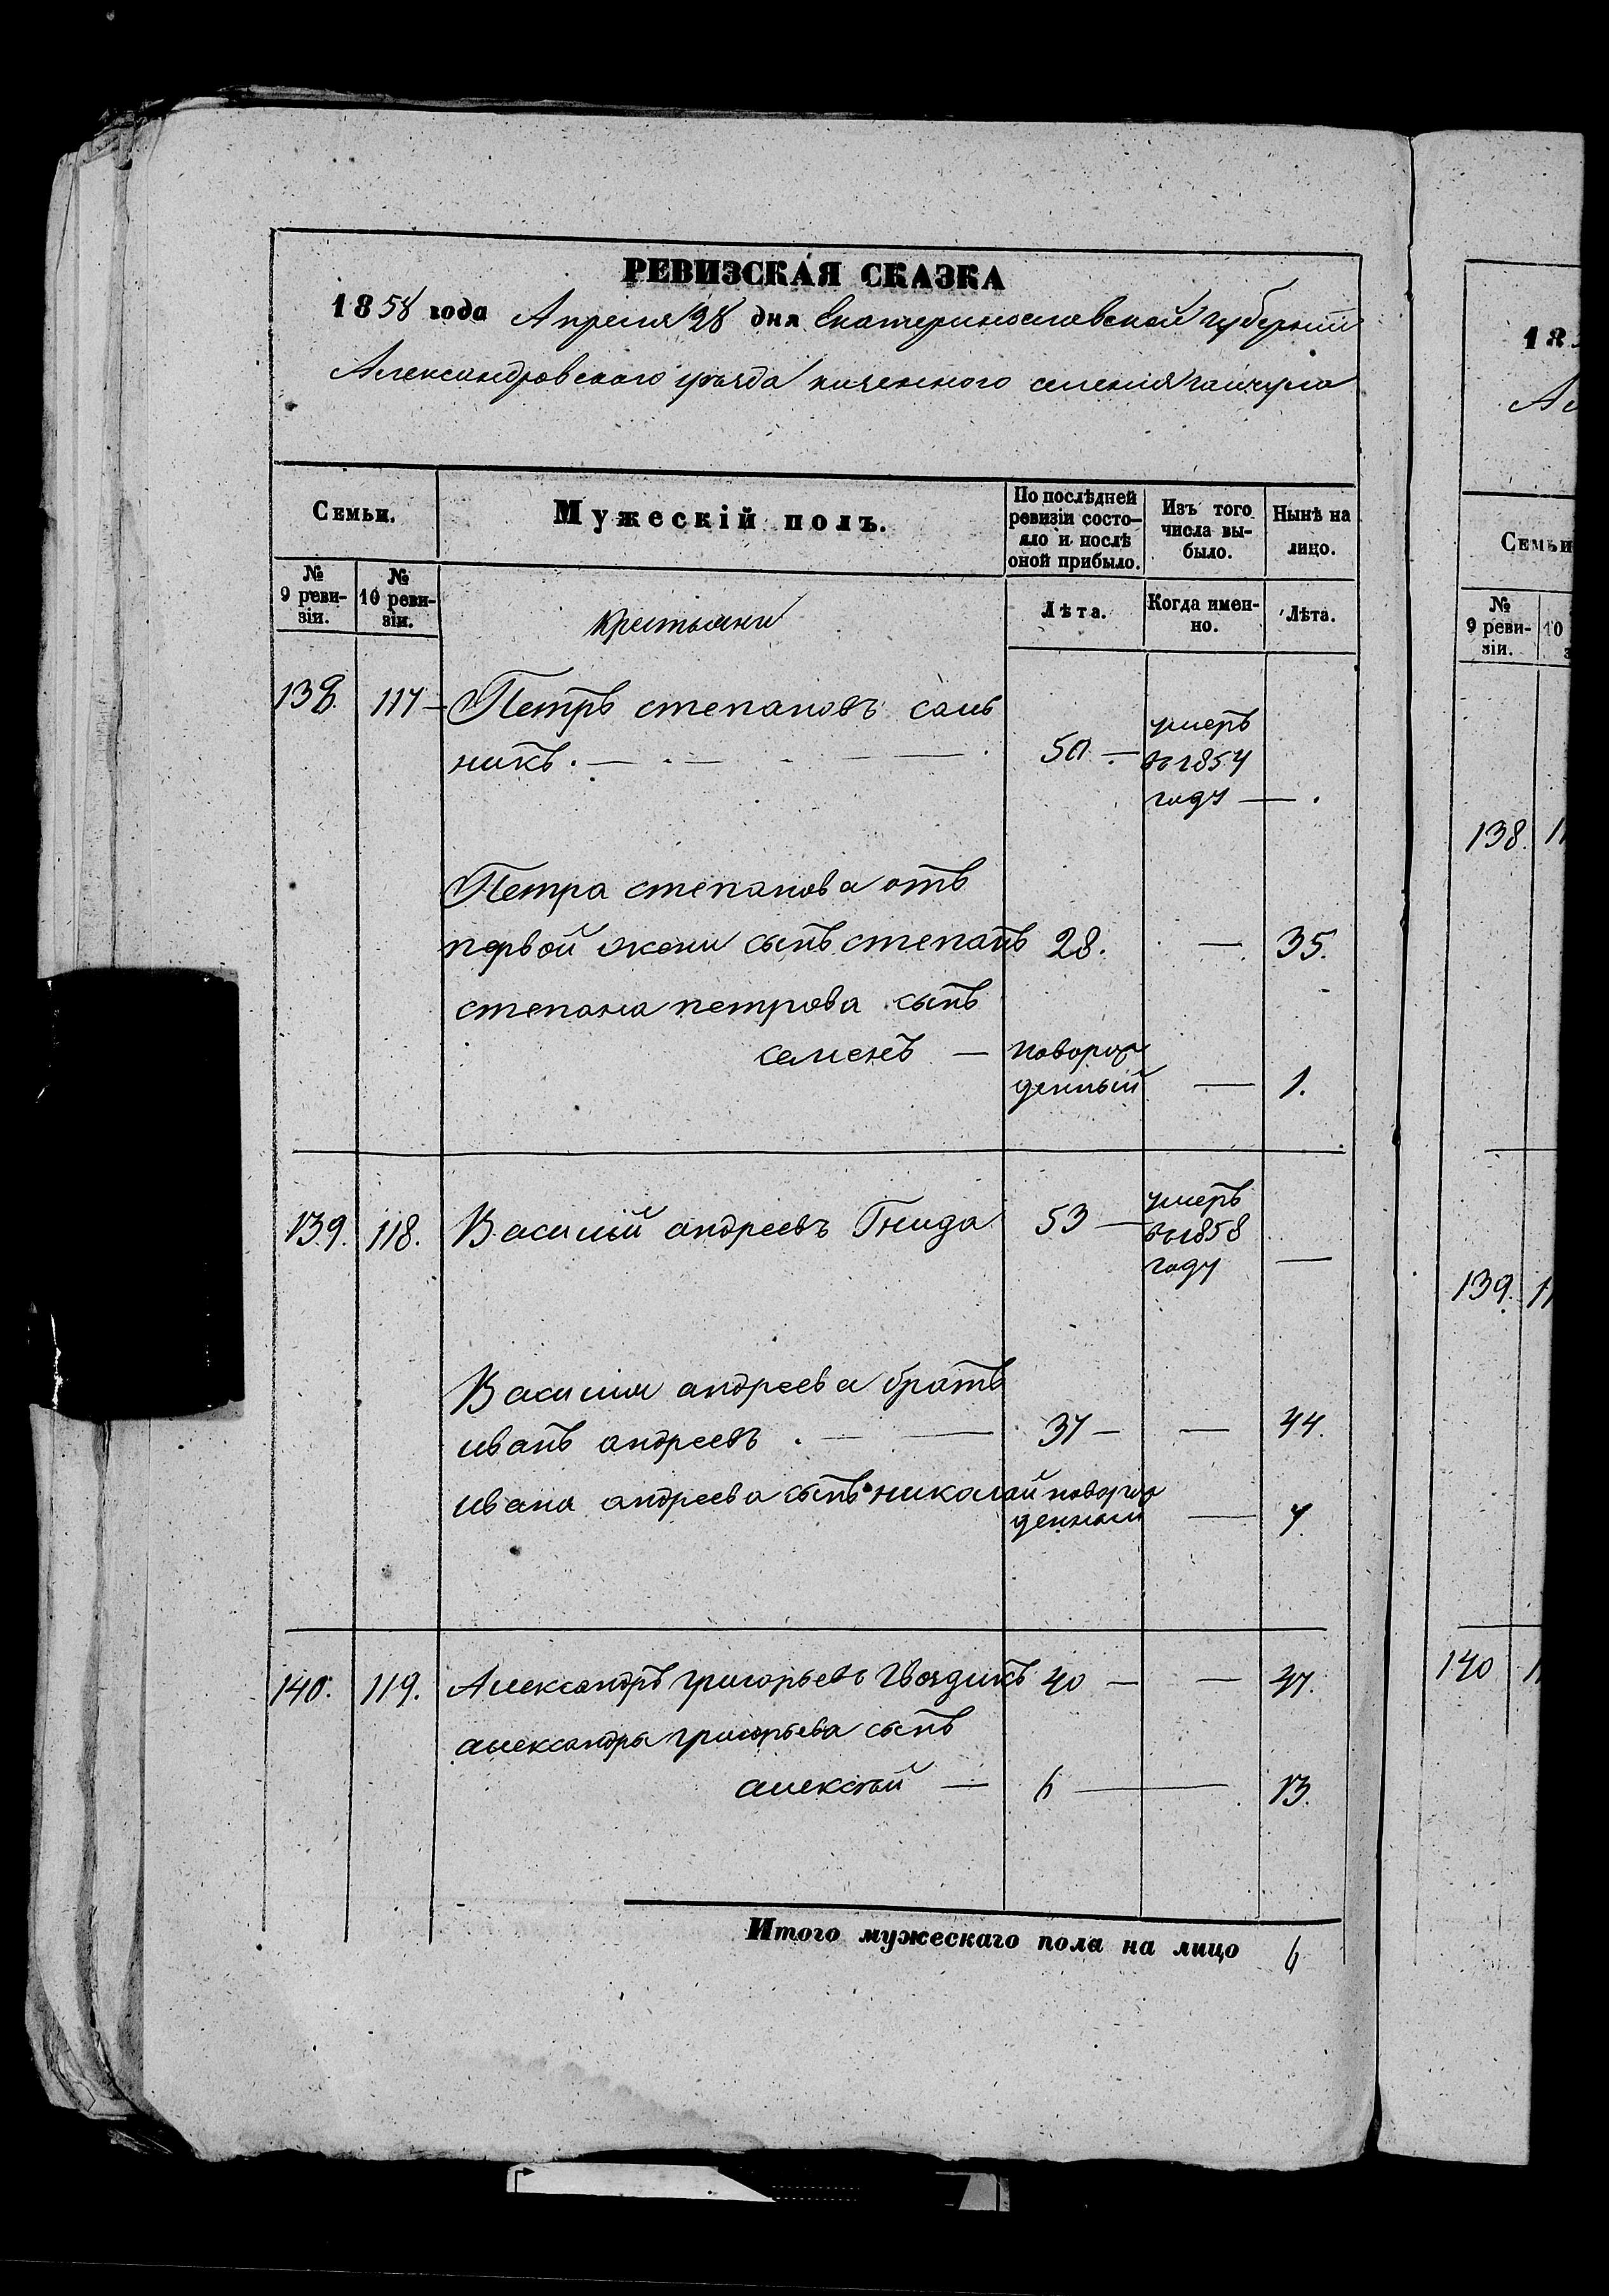 РЕВИЗСКАЯ СКАЗКА
1858 года Апреля 28 дня Екатеринославской губернии
Александровского уезда казенного селения гайчула
Семьи.
Мужескій полъ.
По послѣдней ревизіи состо-
яло и послѣ
оной прибыло.
Изъ того
числа вы-
было.
Нынѣ на
лицо.
№
9 реви-
зіи.
№
10 реви-
зіи.
крестьяни
Лѣта.
Когда имен-
но.
Лѣта.
138. 117 Петръ степановъ саль
никъ. 50 умеръ
въ 1854
году
Петра степанова отъ
первой жены сынъ степанъ 28. 35.
степана петрова сынъ
семенъ новорож
денный 1.
139. 118. Василій андреевъ Гнида 53 умеръ
въ 1858
году
Василия андреева братъ
иванъ андреевъ 37 44.
ивана андреева сынъ николай новорож
денный 7
140. 119. Александръ григорьевъ гвоздикъ 40 47.
александра григорьева сынъ
алексѣй 6 13.
Итого мужескаго пола на лицо 6
18
Ал
Семьи
№
9 реви-
зіи.
10
з
138. 11
139. 11
140 1